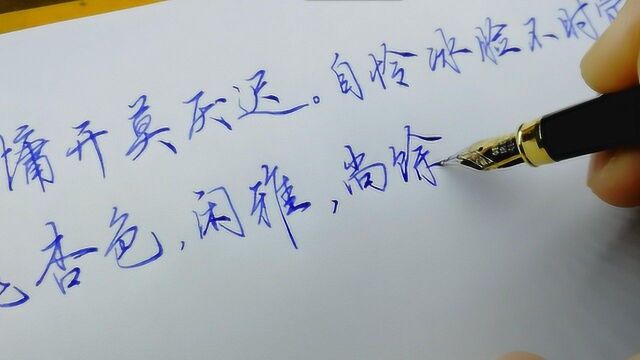 慵开莫厌迟。自怜冰脸不时
杏色，闲雅，尚馀